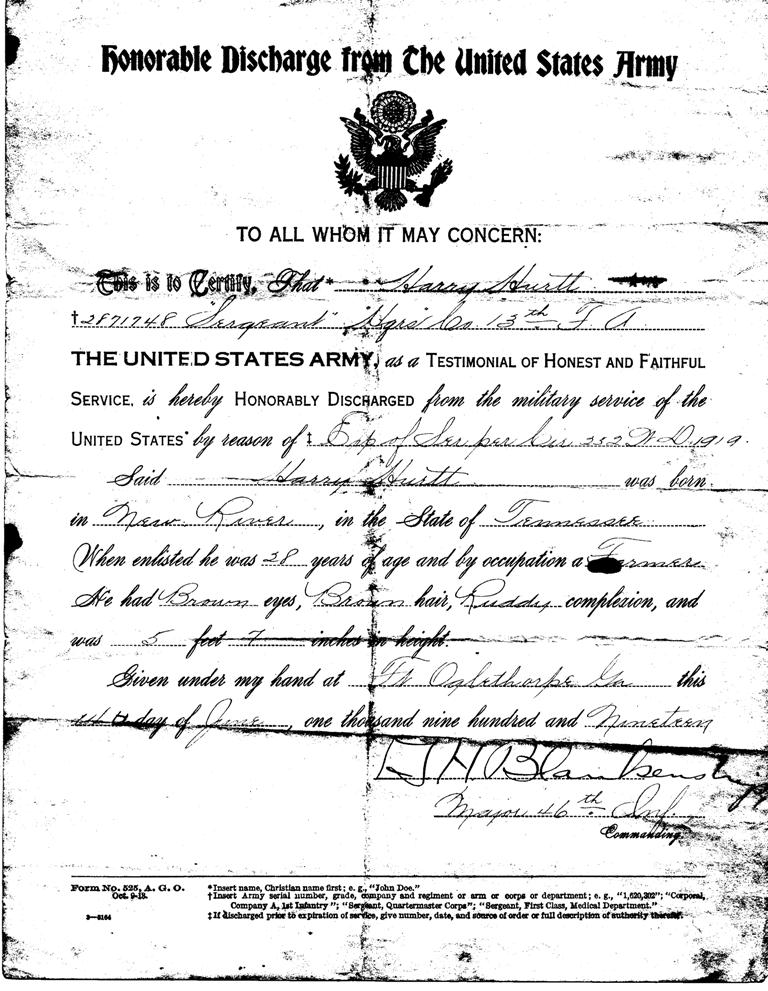 Honorable Discharge from The United States Army
TO ALL WHOM IT MAY CONCERN:
This is to Certify, That* Harry Hurtt
†2871748 Sergeant Hqrs Co. 13th F A
THE UNITED STATES ARMY, as a TESTIMONIAL OF HONEST AND FAITHFUL
SERVICE, is hereby HONORABLY DISCHARGED from the military service of the
UNITED STATES by reason of ‡ Exp of Ser per Cir 252 W D 1919.
Said Harry Hurtt was born
in New River, in the State of Tennessee
When enlisted he was 28 years of age and by occupation a Farmer
He had Brown eyes, Brown hair, Ruddy complexion, and
was 5 feet 7 inches in height.
Given under my hand at Ft Oglethorpe Ga this
day of June, one thousand nine hundred and Nineteen
Blankenship
Major 46th Inf.
Commanding.
Form No. 525, A. G. O.
Oct. 9-18.
*Insert name, Christian name first; e. g., "John Doe."
†Insert Army serial number, grade, company and regiment or arm or corps or department; e. g., "1,620,302"; "Corporal,
Company A, 1st Infantry"; "Sergeant, Quartermaster Corps"; "Sergeant, First Class, Medical Department."
3—3164
‡If discharged prior to expiration of service, give number, date, and source of order or full description of authority therefor.